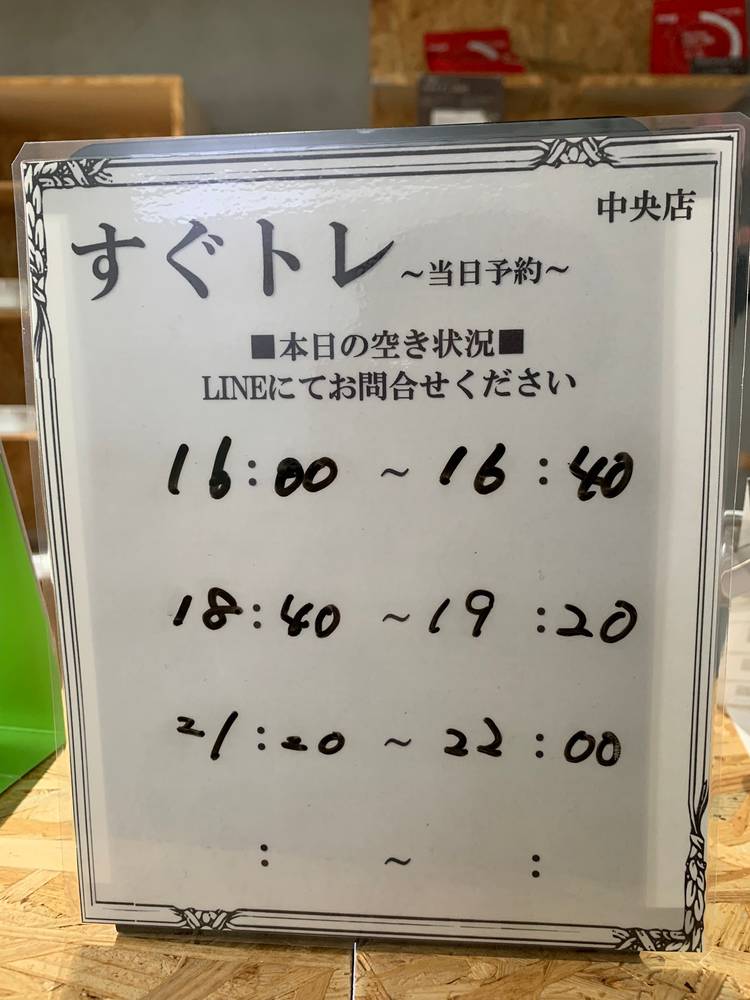 中央店
すぐトレ ～当日予約～
■本日の空き状況■
LINEにてお問合せください
16:00 ～ 16:40
18:40 ～ 19:20
21:20 ～ 22:00
: ～ :